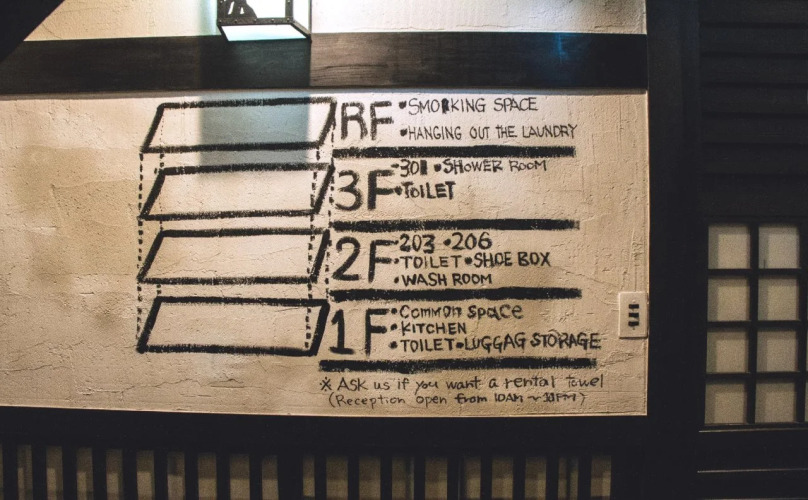 RF •SMORKING SPACE
•HANGING OUT THE LAUNDRY
3F •301 •SHOWER ROOM
•TOILET
2F •203 •206
•TOILET •SHOE BOX
•WASH ROOM
1F •Common space
•KITCHEN
•TOILET •LUGGAG STORAGE
※ Ask us if you want a rental towel
(Reception open from 10AM ~ 11PM)